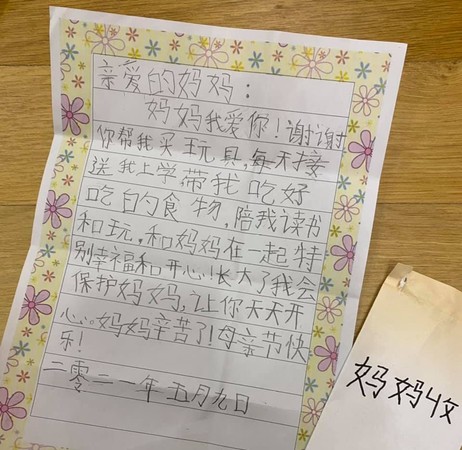 亲爱的妈妈：
妈妈我爱你！谢谢
你帮我买玩具，每天接
送我上学带我吃好
吃的食物，陪我读书
和玩，和妈妈在一起特
别幸福和开心！长大了我会
保护妈妈，让你天天开
心。妈妈辛苦了！母亲节快
乐！
二零二一年五月九日
妈妈收